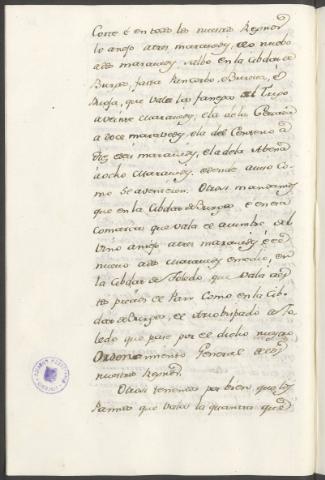 Corte é en todos los nuestros Reynos
lo añejo a tres maravedis, é lo nuebo
a dos maravedis salvo en la Cibdat de
Burgos, fasta Pancorbo, é Burueva, é
Rioja, que vala la fanega del Trigo
a veinte maravedis, é la de la Cevada
a doce maravedis, é la del Centeno a
diez é seis maravedis, é la de la Abena
á ocho maravedis, é dende ayuso co-
mo se avenieren. Otrosi mandamos
que en la Cibdat de Burgos é en su
Comarcas que vala el azumbre del
Vino añejo a tres maravedis é lo
nuevo a dos maravedis en
la Cibdat de Toledo que vala a los
tales precios de Pan como en la Cib-
dat de Burgos, é el Arzobispado de To-
ledo que pase por el dicho nuestro
Ordenamiento General de los
nuestros Reynos.
Otrosi tenemos por bien que los
Paños que valan la quantia que